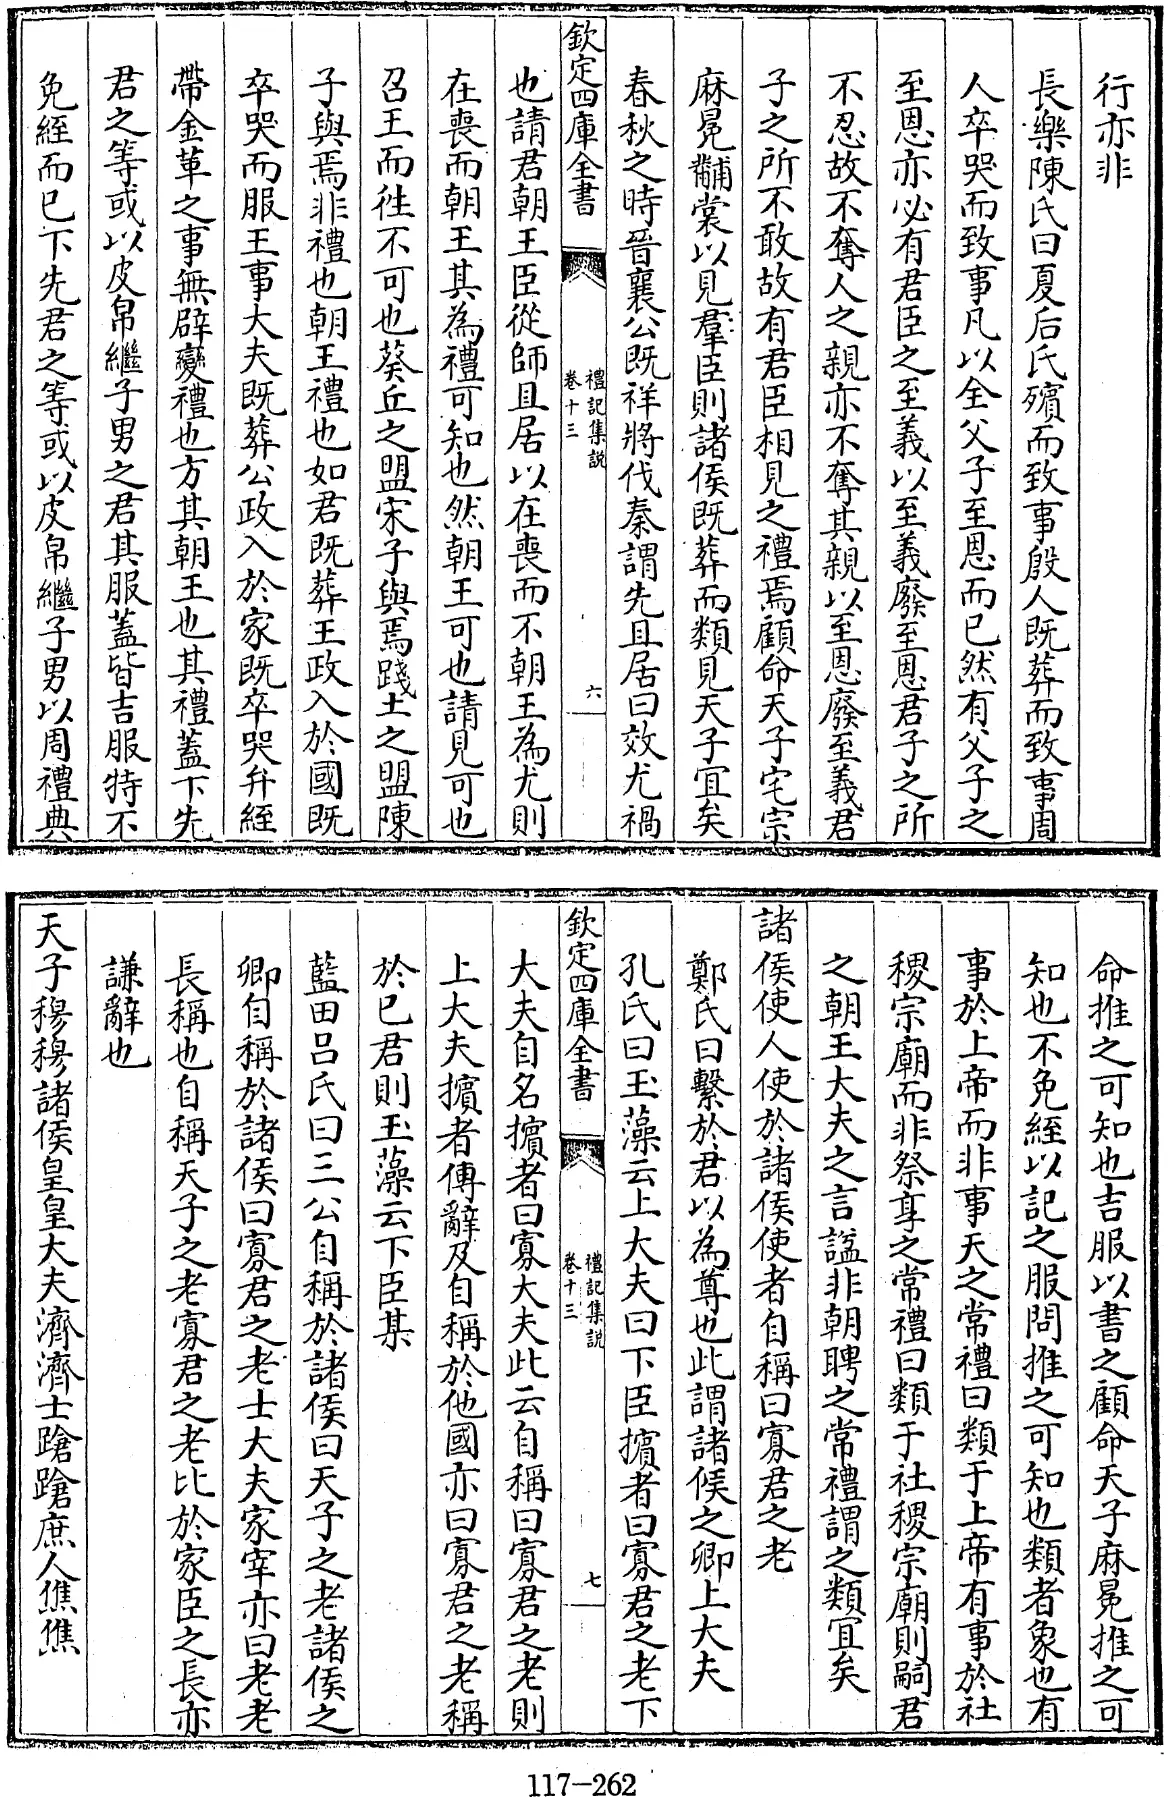 行亦非
長樂陳氏曰夏后氏殯而致事殷人既葬而致事周
人卒哭而致事凡以全父子至恩而已然有父子之
至恩亦必有君臣之至義以至義廢至恩君子之所
不忍故不奪人之親亦不奪其親以至恩廢至義君
子之所不敢故有君臣相見之禮焉顧命天子宅宗
麻冕黼裳以見羣臣則諸侯既葬而類見天子宜矣
春秋之時晉襄公既祥將伐秦謂先且居曰效尤禍
欽定四庫全書
禮記集説
卷十三
六
也請君朝王臣從師且居以在喪而不朝王為尤則
在喪而朝王其為禮可知也然朝王可也請見可也
召王而徃不可也葵丘之盟宋子與焉踐土之盟陳
子與焉非禮也朝王禮也如君既葬王政入於國既
卒哭而服王事大夫既葬公政入於家既卒哭弁絰
帶金革之事無辟變禮也方其朝王也其禮蓋下先
君之等或以皮帛繼子男之君其服蓋皆吉服特不
免絰而已下先君之等或以皮帛繼子男以周禮典
命推之可知也吉服以書之顧命天子麻冕推之可
知也不免絰以記之服問推之可知也類者象也有
事於上帝而非事天之常禮曰類于上帝有事於社
稷宗廟而非祭享之常禮曰類于社稷宗廟則嗣君
之朝王大夫之言諡非朝聘之常禮謂之類宜矣
諸侯使人使於諸侯使者自稱曰寡君之老
鄭氏曰繫於君以為尊也此謂諸侯之卿上大夫
孔氏曰玉藻云上大夫曰下臣擯者曰寡君之老下
欽定四庫全書
禮記集説
卷十三
七
大夫自名擯者曰寡大夫此云自稱曰寡君之老則
上大夫擯者傳辭及自稱於他國亦曰寡君之老稱
於已君則玉藻云下臣某
藍田呂氏曰三公自稱於諸侯曰天子之老諸侯之
卿自稱於諸侯曰寡君之老士大夫家宰亦曰老老
長稱也自稱天子之老寡君之老比於家臣之長亦
謙辭也
天子穆穆諸侯皇皇大夫濟濟士蹌蹌庶人僬僬
117-262